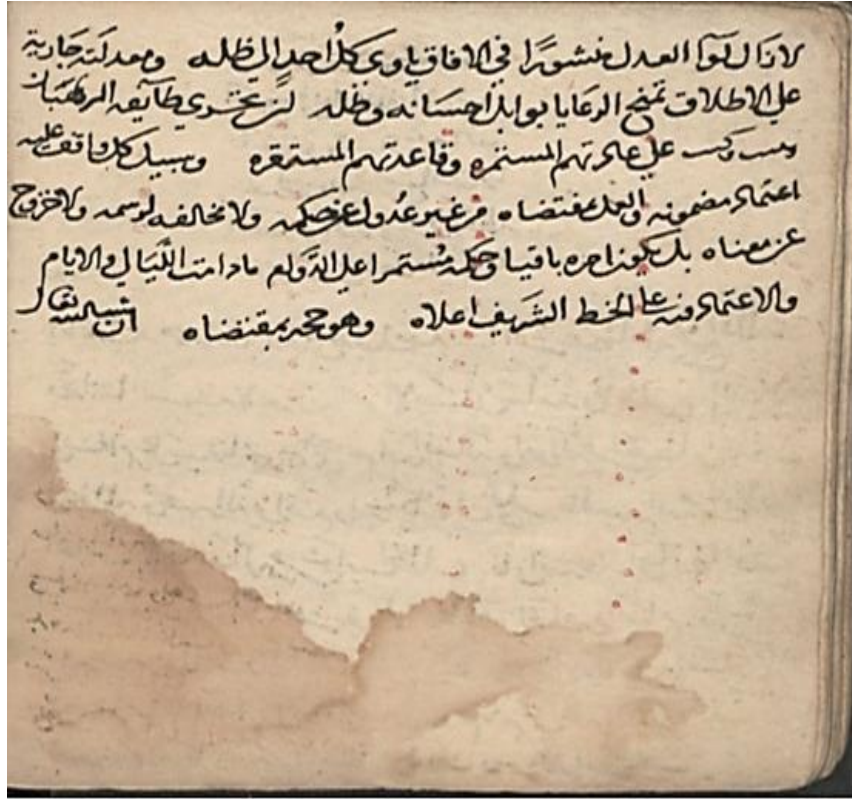 لا زال لوآ العدل منشورًا في الافاق ياوي كل احد الي ظله ومعدلته جارية
علي الاطلاق تمنح الرعايا بوابل احسانه وظله لن تجري طآيفه الرهبان
علي عادتهم المستمره وقاعدتهم المستقره وسبيل كل واقف عليه
اعتماد مضمونه والعمل بمقتضاه من غير عدول عن حكمه ولا مخالفه لرسمه ولا خروج
عن معناه بل يكون امره باقيا وحكمه مستمرا علي الدوام ما دامت الليالي والايام
والاعتماد فيه علي الخط الشريف اعلاه وهو حجه بمقتضاه ان شا الله تعالى